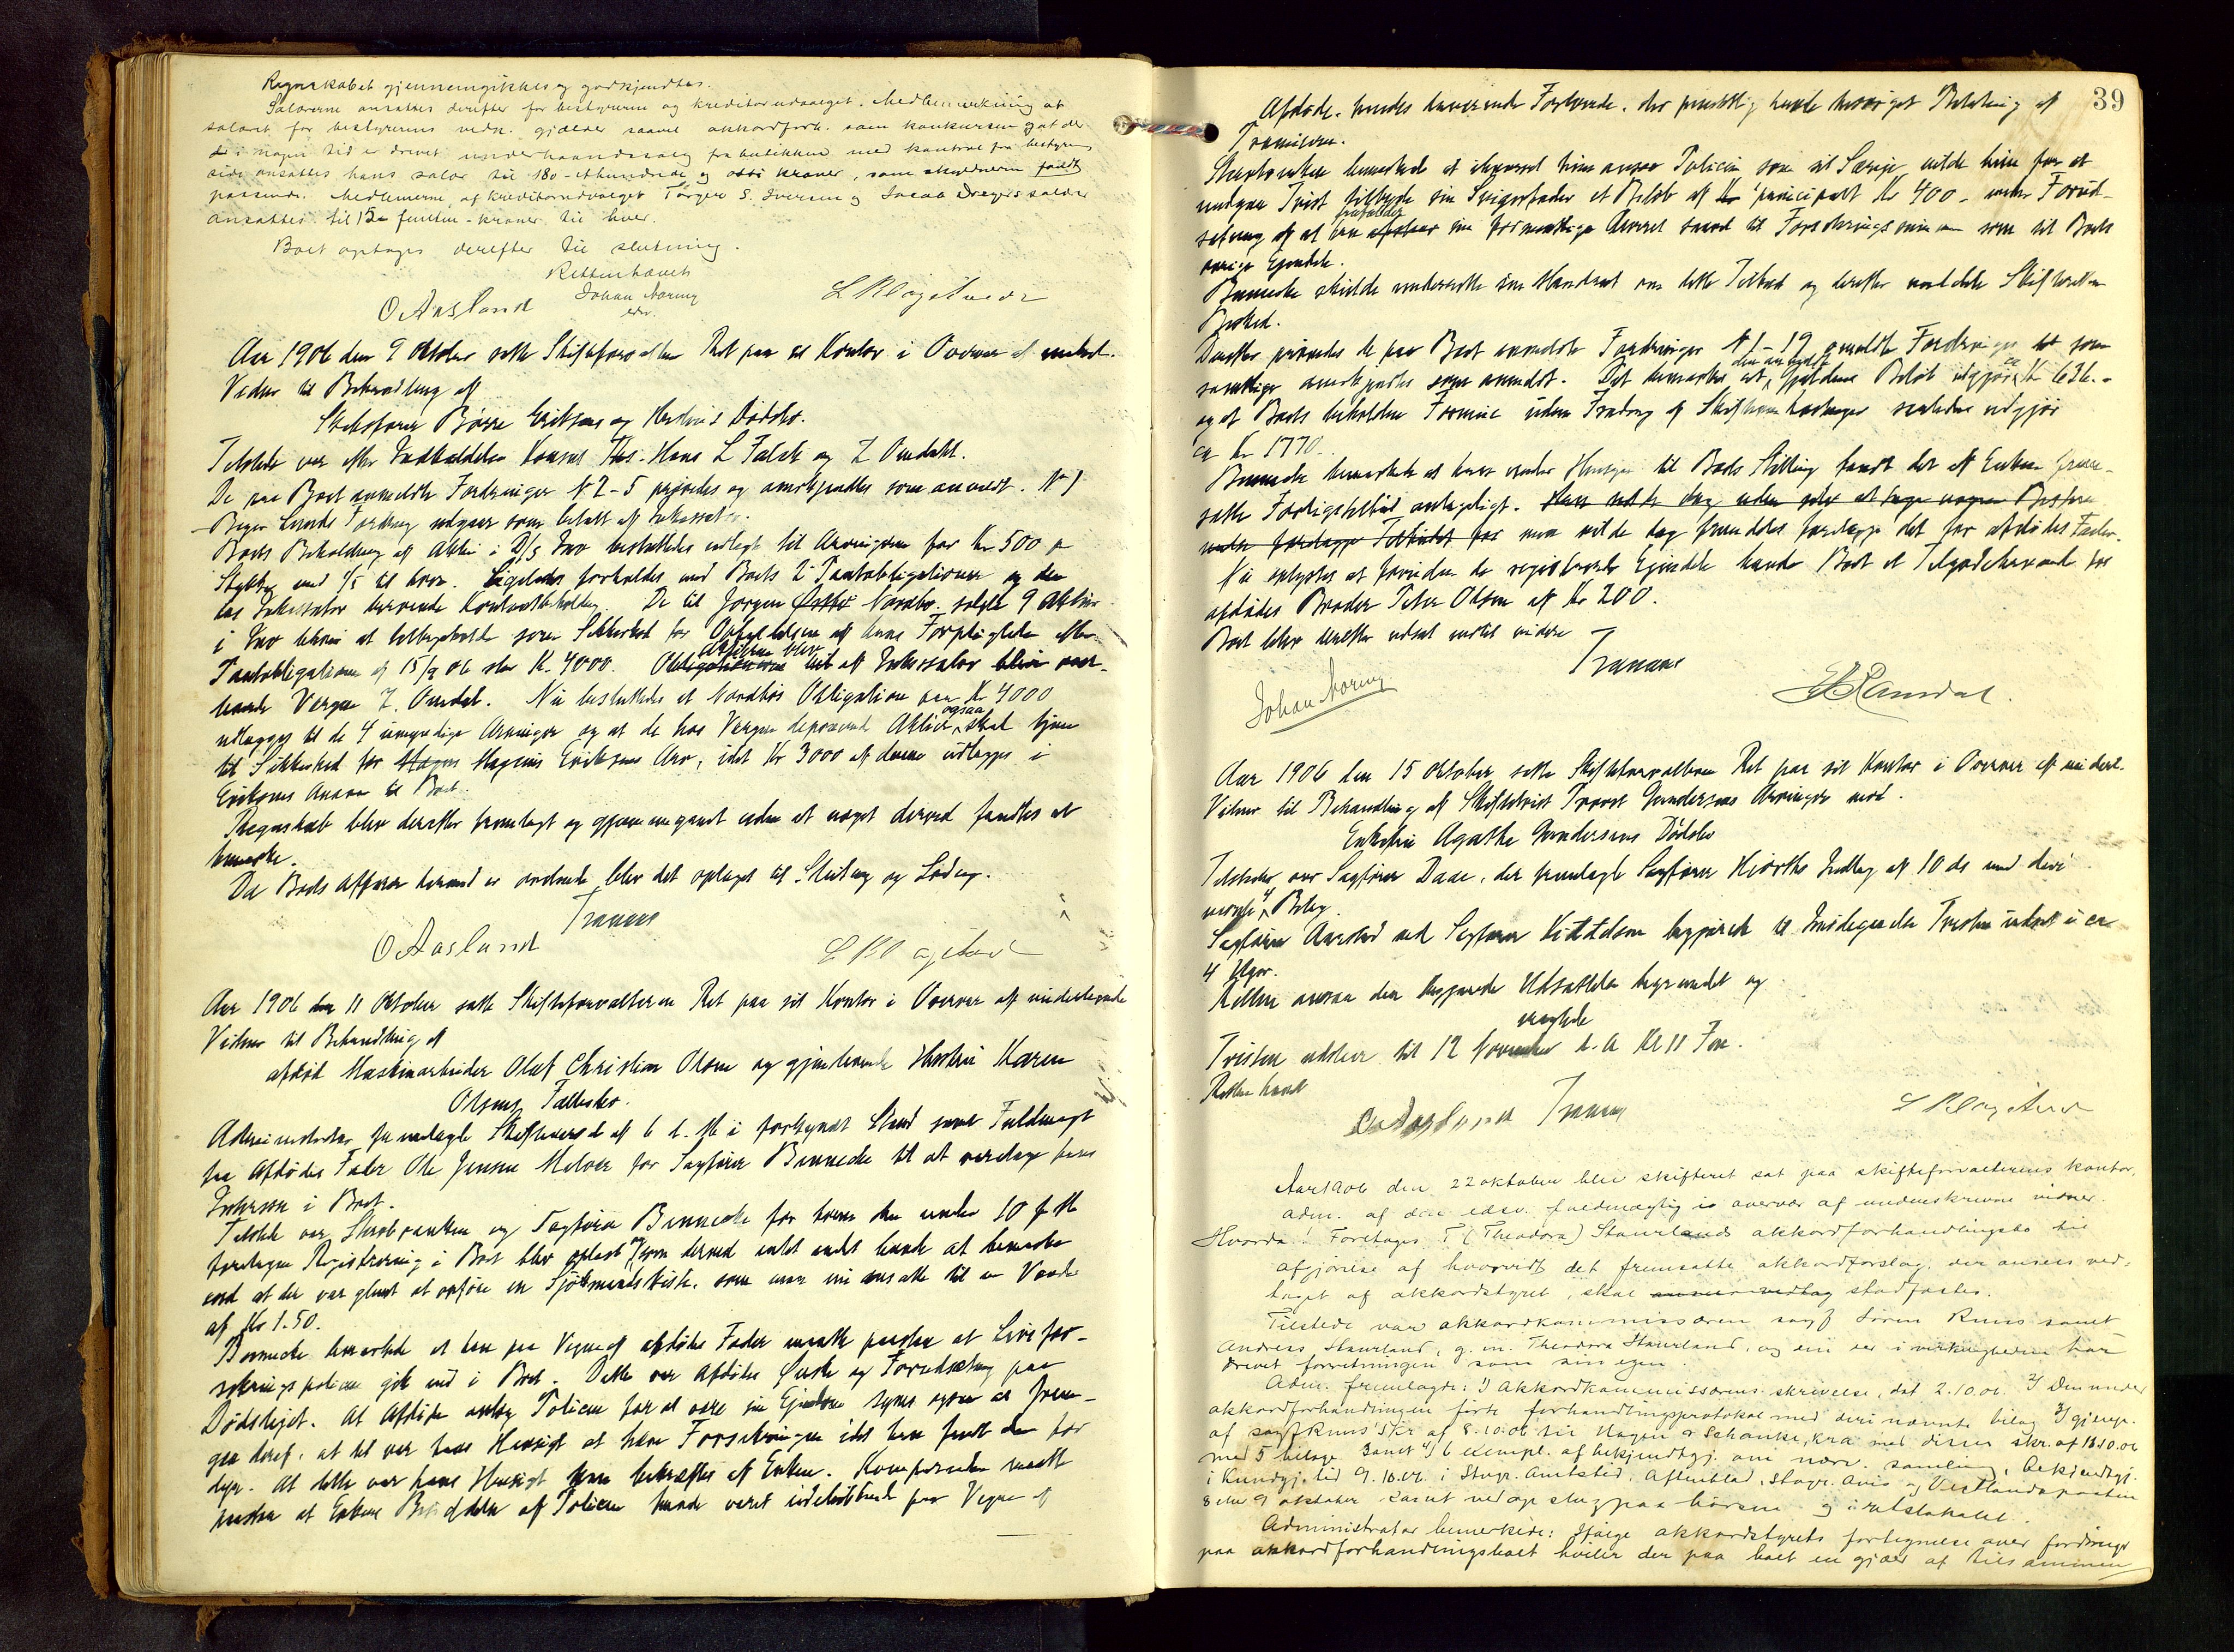 Regnskabet gjennemgikkes og godkjendtes.
Salærerne ansattes derefter for bestyreren og kreditorudvalget. Med bemerkning at
salæret for bestyrerens vedk. gjælder saavel akkordforh. som konkursen og at der
i nogen tid er drevet underhaandssalg fra butikken med kontrol fra bestyrerens
side ansattes hans salær til 180 - ethundrede og otti kroner, som skyldneren fandt
passende. Medlemerne af kreditorudvalget Tørger S. Iversen og Jacob Dreyers salær
ansattes til 15 - femten - kroner til hver.
Boet optages derefter til slutning.
Retten hævet
Johan Noring
edsv.
O Aasland
L Kløgetvedt
Aar 1906 den 9 Oktober satte Skifteforvalteren Ret paa sit Kontor i Overvær af undert.
Vidner til Behandling af
Skibsfører Børre Eriksens og Hustrus Dødsbo.
Tilstede var efter Indkaldelse Konsul Ths. Hans L Falck og Z Omdahl.
De paa Boet anmeldte Fordringer No 2-5 prøvedes og anerkjendtes som anmeldt. No 1
Birger Lunds Fordring udgaar som betalt af Inkassator.
Boets Beholdning af Aktier i D/S Ino besluttedes udlagt til Arvingerne for Kr 500 pr
Stykke med 1/5 til hver. Ligeledes forholdes med Boets 2 Panteobligationer og den
hos Inkassator beroende Kontantbeholdning. De til Jørgen Nordbø solgte 9 Aktier
i Ino bliver at tilbageholde som Sikkerhed for Opfyldelsen af hans Forpligtelse efter
Panteobligationen af 15/9 06 stor Kr. 4000. Aktierne blev af Inkassator over-
leveret Vergen Z. Omdal. Nu besluttedes at Nordbøs Obligation paa Kr 4000
udlægges til de 4 umyndige Arvinger og at de hos Vergen deponerede Aktier ogsaa skal tjene
til Sikkerhed for Magnus Eriksens Arv, idet Kr 3000 af denne udlægges i
Eriksens Ansvar til Boet.
Regnskab blev derefter fremlagt og gjennemgaaet uden at noget derved fandtes at
bemerke.
Da Boets Affærer hermed er ordnede, blev det optaget til Slutning og Lodning.
O Aasland
L Kløgetvedt
Aar 1906 den 11 Oktober satte Skifteforvalteren Ret paa sit Kontor i Overvær af undertegnede
Vidner til Behandling af
afdød Maskinarbeider Olaf Christian Olsens og gjenlevende Hustru Karen
Olsens Fællesbo.
Administrator fremlagte Skiftevarsel af 6 d. M i forkyndt Stand samt Fuldmagt
fra Afdødes Fader Ole Jensen Melvær for Sagfører Bennecke til at varetage hans
Interesse i Boet.
Tilstede var Skrabsenken og Sagfører Bennecke for hvem den under 10 f M
foretagne Registrering i Boet blev oplæst og som derved intet andet havde at bemerke
end at der var glemt at opføre en Sjømandskiste, som man nu ansatte til en Værdi
af Kr 1.50.
Bennecke bemerkede at han paa Vegne af afdødes Fader maatte paastaa at Livsfor-
sikringspolicen gik ind i Boet. Dette var Afdødes Ønske og Forudsætning paa
Dødsleiet. At Afdøde antog Policen for at være sin Eiendom synes ogsaa at frem-
gaa deraf, at det var hans Hensigt at hæve Forsikringen idet han fandt den for
dyr. At dette var hans Hensigt kan bekræftes af Enken. Komparenten maatte
paastaa at Enkens Besiddelse af Policen havde været udelukkende paa Vegne af
39
Afdøde, hendes daværende Forlovede, der personlig havde besørget Betaling af
Præmierne.
Skrabsenken bemerkede at ihvorvel hun ansaa Policen som sit Særeie vilde hun for at
undgaa Tvist tilbyde sin Svigerfader et Beløb af principalt Kr 400 - under Forud-
sætning af at han frafalder sin formentlige Arveret saavel til Forsikringssummen som til Boets
øvrige Eiendele.
Bennecke skulde underrette sin Mandant om dette Tilbud og derefter meddele Skifteretten
Besked.
Derefter prøvedes de paa Boet anmeldte Fordringer No 1-19 som
samtlige anerkjendtes som anmeldt. Det bemerkes at den anmeldte Gjældens Beløb udgjør ca Kr 636.-
og at Boets beholdne Formue uden Fradrag af Skifteomkostninger saaledes udgjør
ca Kr 1770.
Bennecke bemerkede at han under Hensyn til Boets Stilling fandt det af Enken frem-
satte Forligstilbud antageligt. men vilde dog fremdeles forelægge det for afdødes Fader.
Nu oplystes at foruden de registrerede Eiendele havde Boet et Tilgodehavende hos
afdødes Broder Peter Olsen af Kr 200.
Boet blev derefter udsat indtil videre
Johan Noring
Aar 1906 den 15 Oktober satte Skifteforvalteren Ret paa sit Kontor i Overvær af undert.
Vidner til Behandling af Skiftetvist Gundersens Arvinger mod
Enkefru Agathe Gundersens Dødsbo
Tilstede var Sagfører Daae, der fremlagte Sagfører Hiorths Indlæg af 10 ds med deri
nævnte 4 Bilag
Sagfører Aarstad ved Sagfører Kittelsen begjærede til Imødegaaelse Tvisten udsat i ca
4 Uger.
Retten ansaa den begjærede Udsættelse begrundet og
eragtede
Tvisten udstaar til 12 November d. A Kl 11 Fm.
Retten hævet
O Aasland
L Kløgetvedt
Aar 1906 den 22 oktober blev skifteret sat paa skifteforvalterens kontor,
adm. af den edsv. fuldmægtig i overvær af underskrevne vidner.
Hvorda: Foretages T. (Theodora) Staurlands akkordforhandlingsbo til
afgjørelse af hvorvidt det fremsatte akkordforslag, der ansees ved-
taget af akkordstyret, skal stadfæstes.
Tilstede var akkordkommissæren sagf Søren Riiis samt
Andreas Staurland, g. m. Theodora Staurland, og som i virkeligheden har
drevet forretningen som sin egen.
Adm. fremlagde: 1) Akkordkommissærens skrivelse, dat 2.10.06. 2) Den under
akkordforhandlingen førte forhandlingsprotokol med deri nævnte bilag 3) gjenp.
af sagf Riiis' skr af 8.10.06 til Hagen & Schanke, Kra med disses skr. af 13.10.06
med 5 bilage samt 4) 6 exempl. af bekjendtgj. om nærv. samling, bekjendtgj.
i Kundgj. tid 9.10.06. i Stvgr. Amtstid, Aftenblad, Stvgr. Avis og Vestlandsposten
8 eller 9 oktober samt ved opslag paa børsen og i retslokalet.
Administrator bemerkede: Ifølge akkordstyrets fortegnelse over fordringer
paa akkordforhandlingsboet hviler der paa boet en gjæld af tilsammen